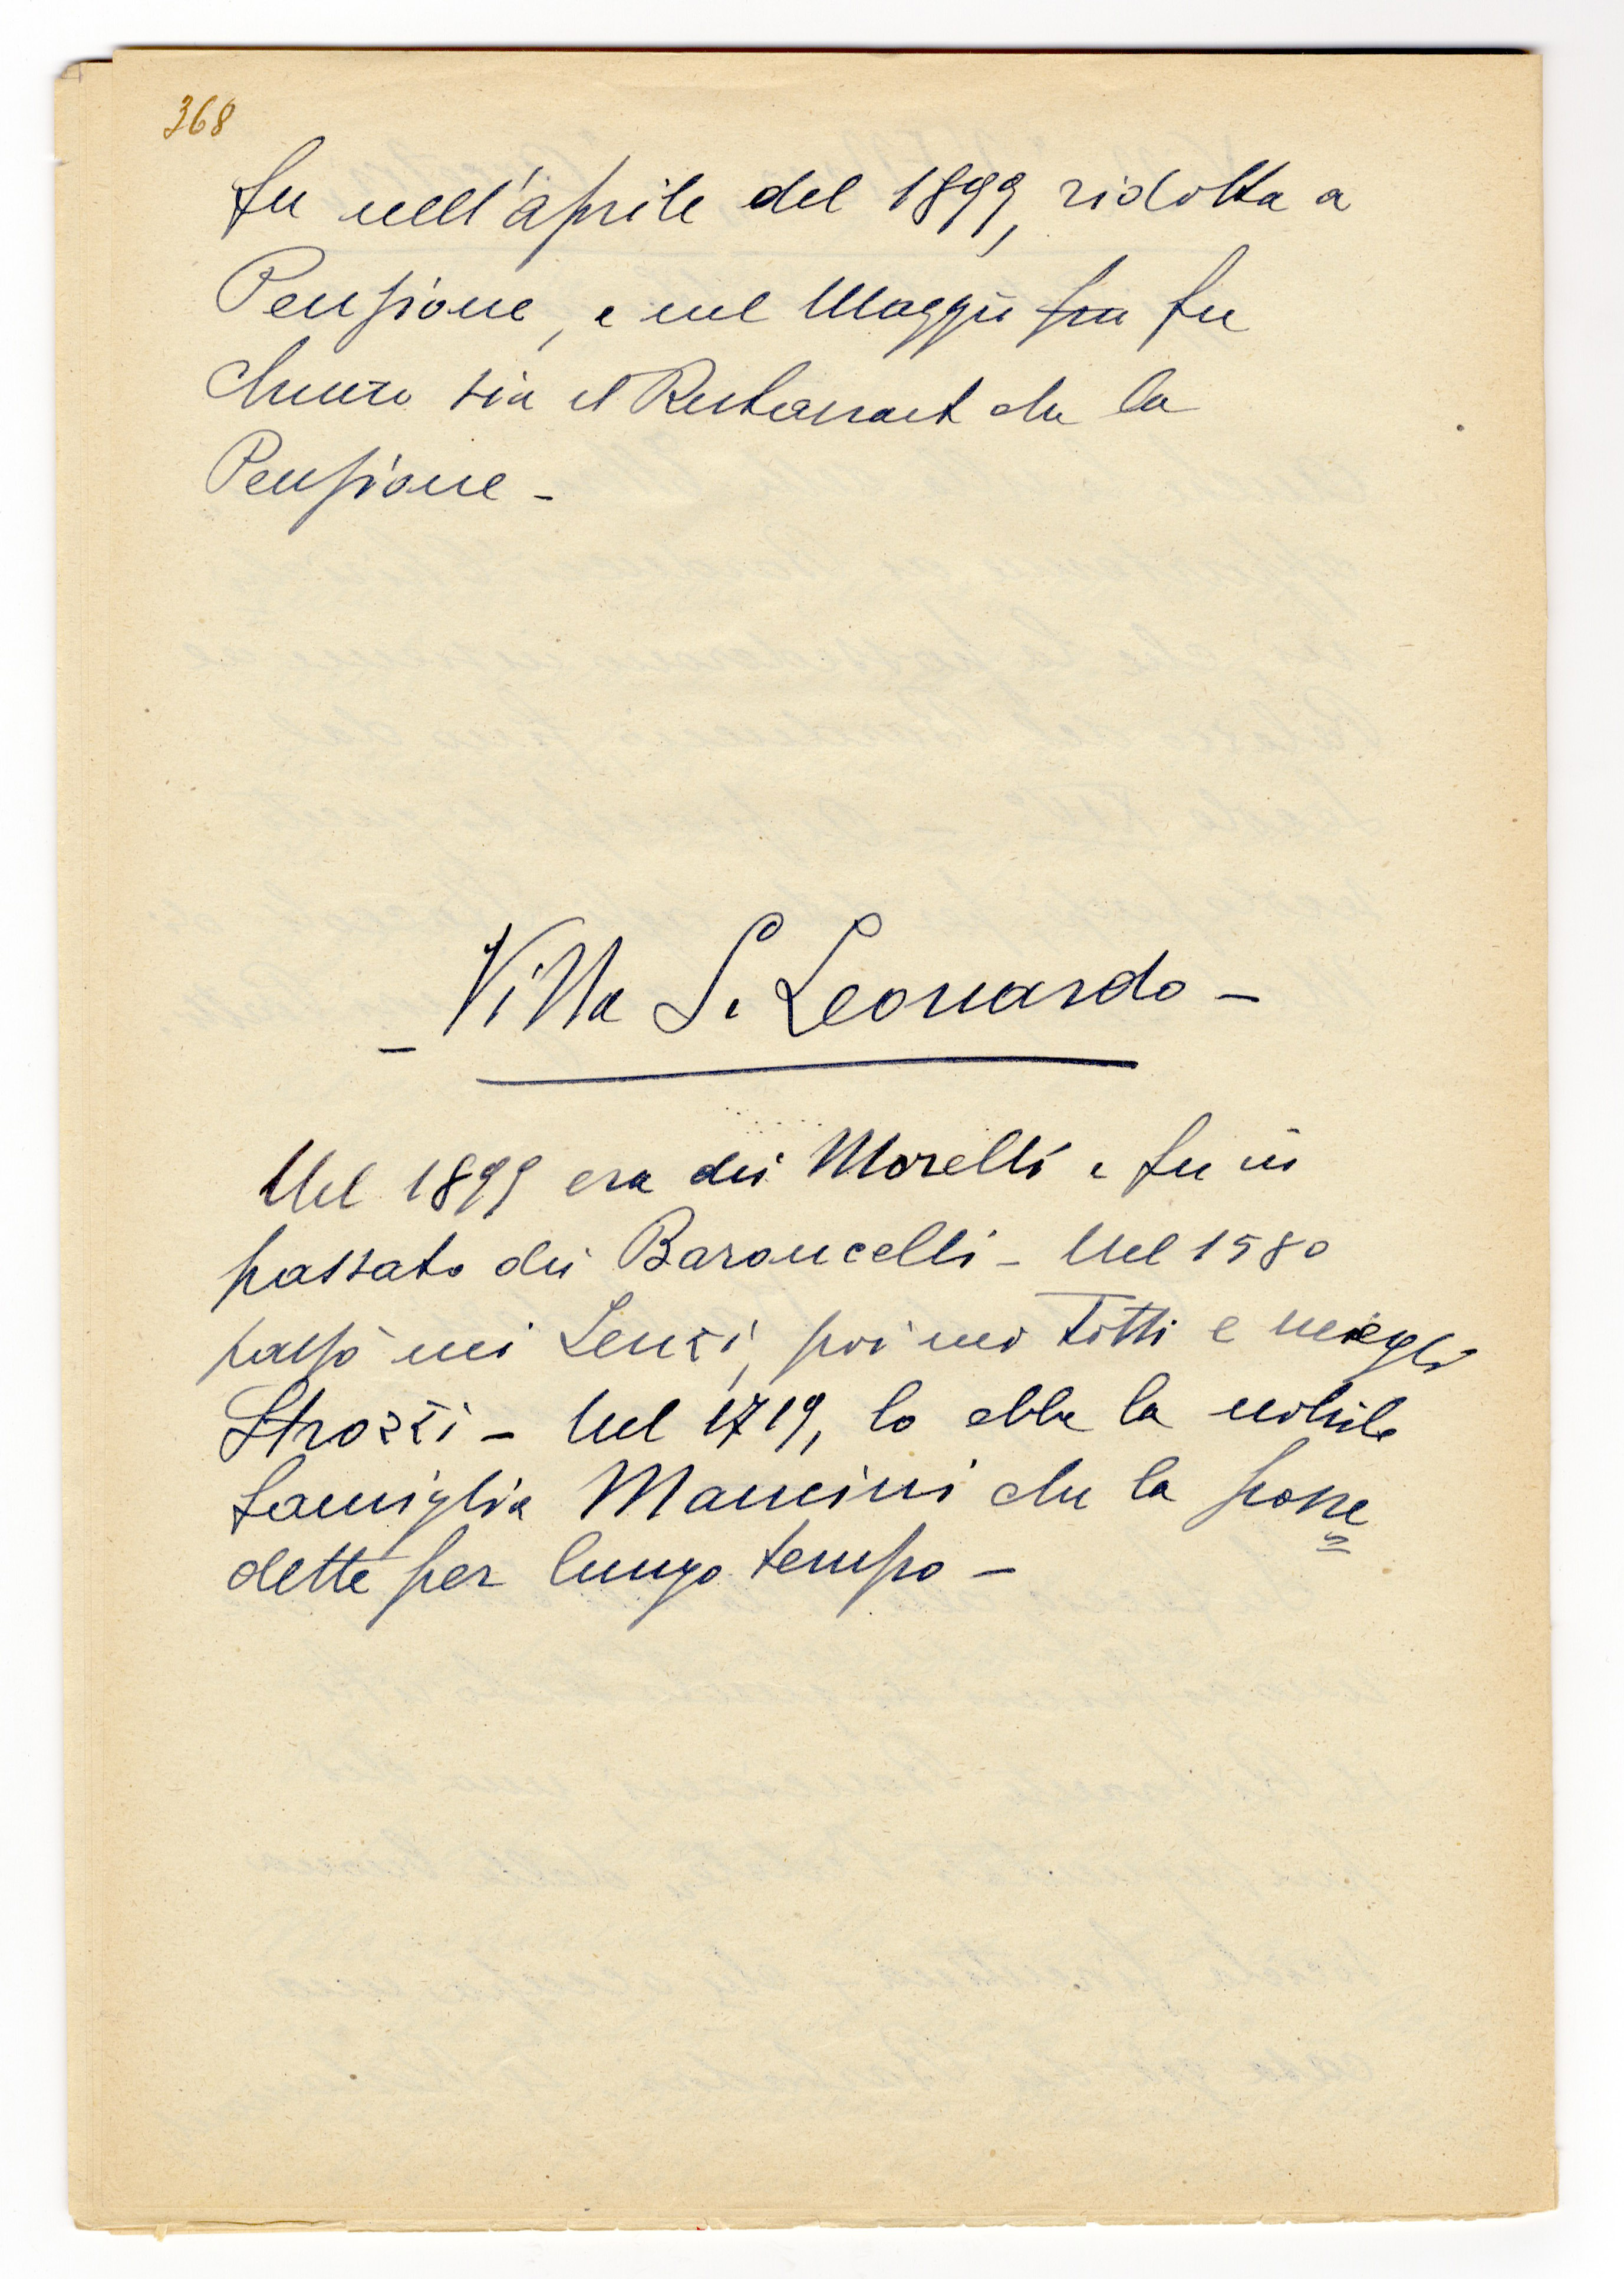 368
fu nell'aprile del 1899, ridotta a
Pensione, e nel Maggio fu fu
chiuso sia il Restaurant che la
Pensione -
- Villa S. Leonardo -
Nel 1899 era dei Morelli e fu in
passato dei Baroncelli - Nel 1580
passò nei Lenzi, poi nei Totti e negli
Strozzi - Nel 1719, lo ebbe la nobile
famiglia Mancini che la posse
=
dette per lungo tempo -